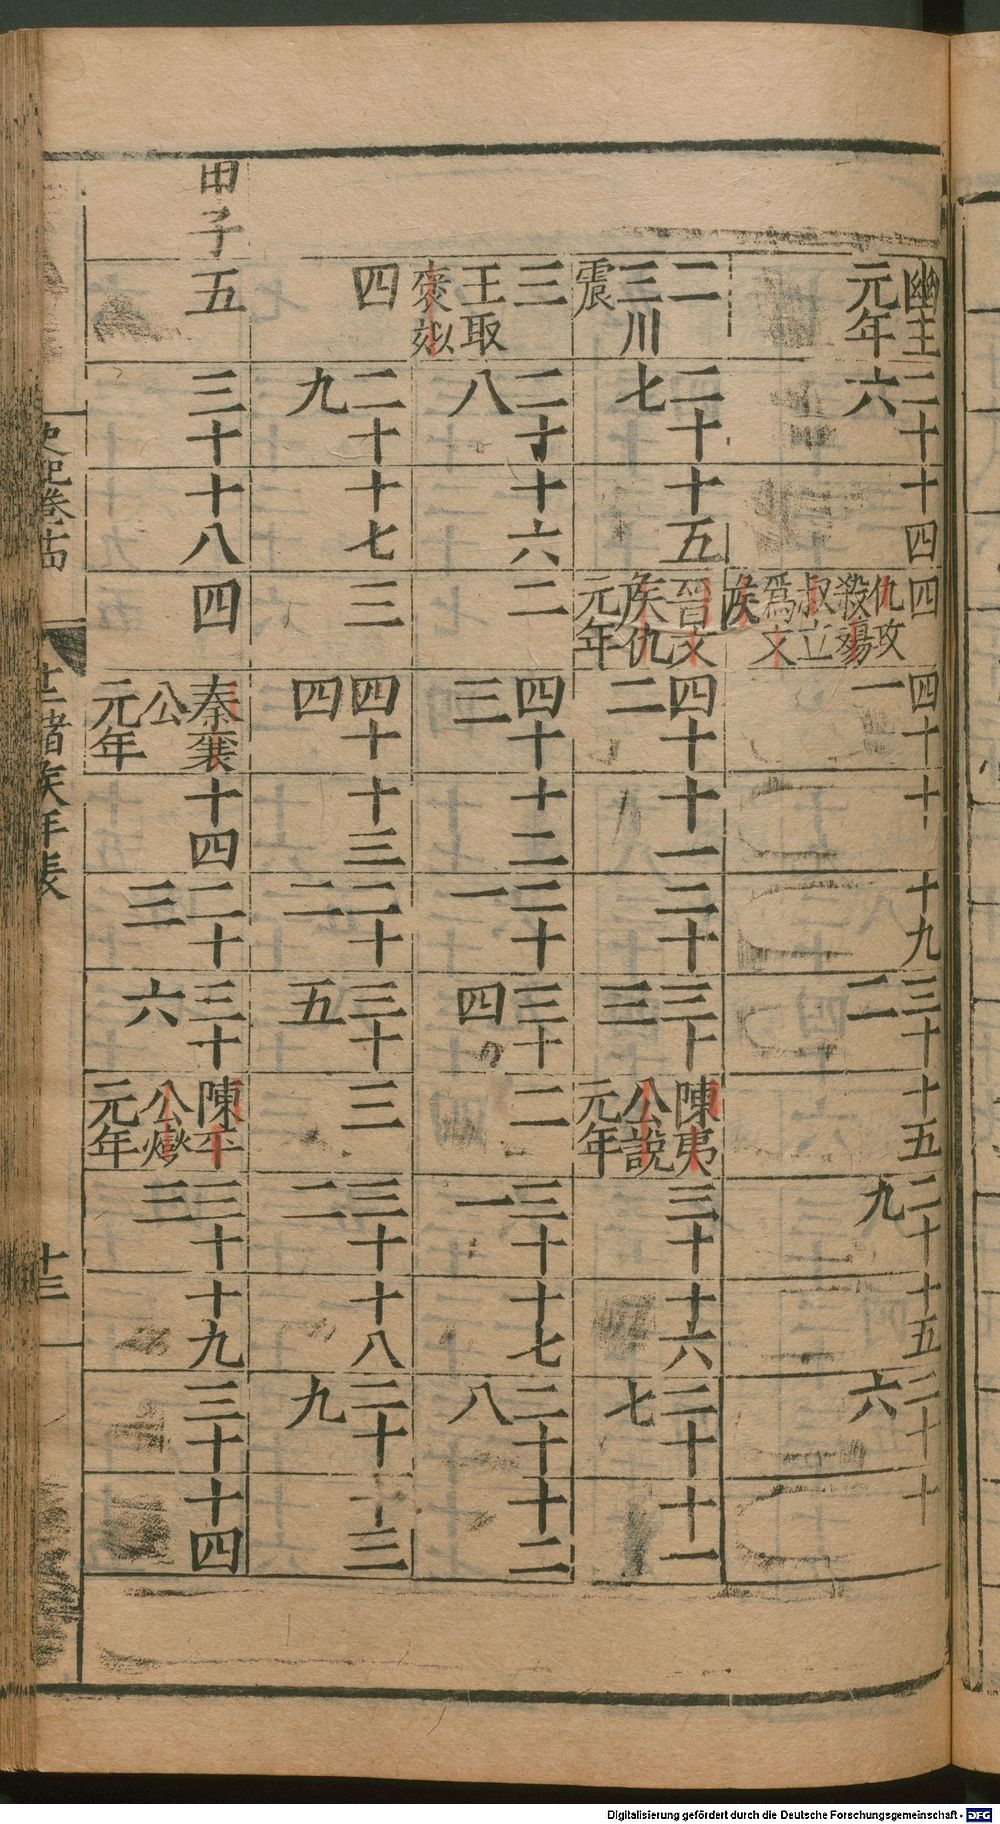 幽王元年
二十六
十四
四 仇攻殺殤叔立爲文矦
四十一
十
十九
三十二
十五
二十九
十五
二十六
十
二 三川震
二十七
十五
晉文矦仇元年
四十二
十一
二十
三十三
陳夷公說元年
三十
十六
二十七
十一
三 王取襃姒
二十八
十六
二
四十三
十二
二十一
三十四
二
三十一
十七
二十八
十二
四
二十九
十七
三
四十四
十三
二十二
三十五
三
三十二
十八
二十九
十三
甲子
五
三十
十八
四
秦襄公元年
十四
二十三
三十六
陳平公燮元年
三十三
十九
三十
十四
史記卷十四
十二諸矦年表
十三
Digitalisierung gefördert durch die Deutsche Forschungsgemeinschaft - DFG